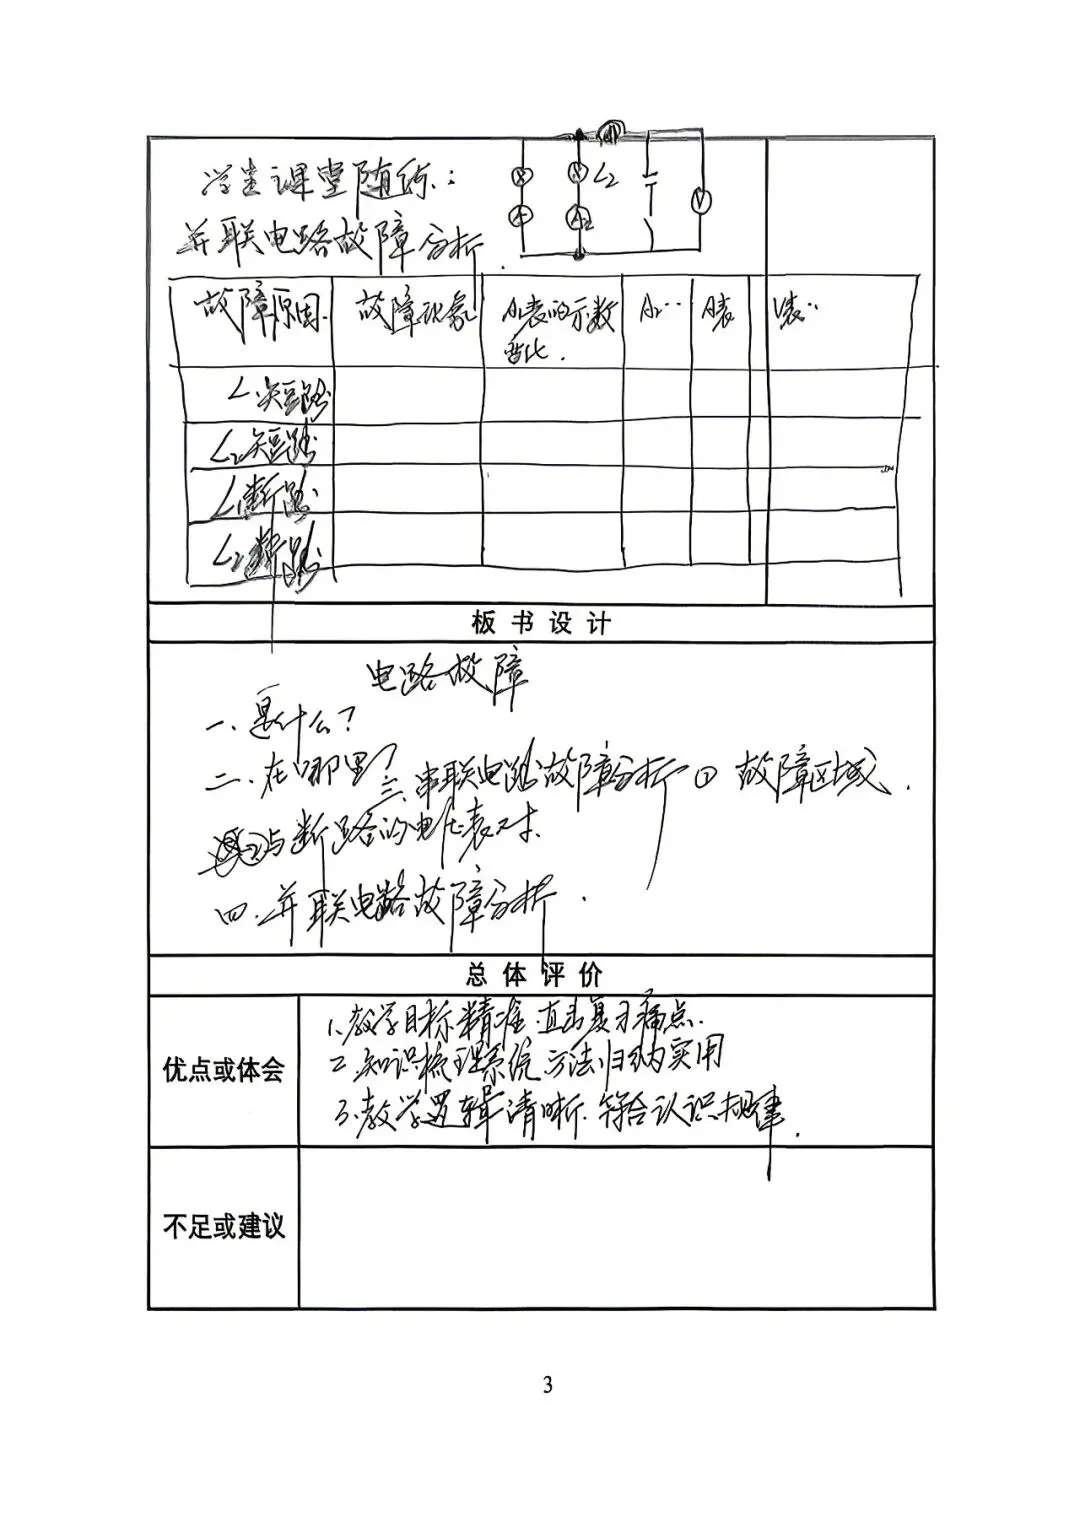 学生课堂随练:
并联电路故障分析.
L2
A2
V
故障原因 故障现象 A1表的示数变化. A2… A表 V表…
L1短路
L2短路
L1断路
L2断路
板书设计
电路故障
一、是什么?
二、在哪里?
三、串联电路故障分析 ① 故障区域.
②与断路的电压表对.
四、并联电路故障分析.
总体评价
优点或体会
1、教学目标精准 直击复习痛点.
2、知识梳理系统 方法归纳实用
3、教学逻辑清晰. 符合认识规律.
不足或建议
3